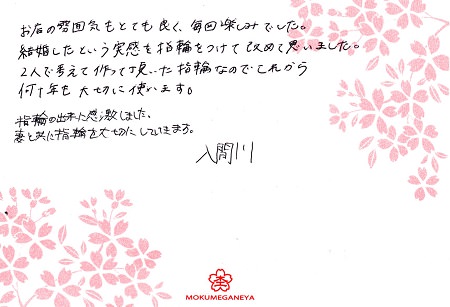 お店の雰囲気もとても良く、毎回楽しみでした。
結婚したという実感を指輪をつけて改めて思いました。
2人で考えて作って頂いた指輪なのでこれから
何十年も大切に使います。
指輪の出来に感激しました、
妻と共に指輪を大切にしていきます。
入間川
杢
MOKUMEGANEYA